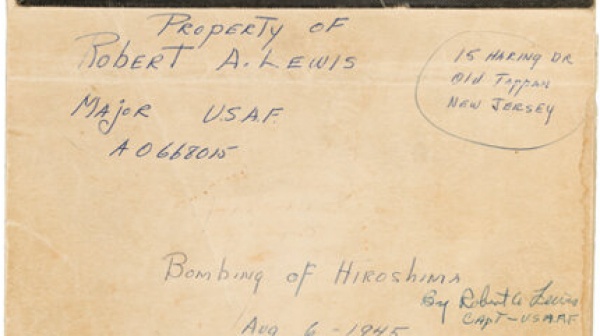 Property of
Robert A. Lewis
Major U.S.A.F.
A0668015
15 Haring Dr
Old Tappan
New Jersey
Bombing of Hiroshima
By Robert A Lewis
Capt-USAAF
Aug 6-1945